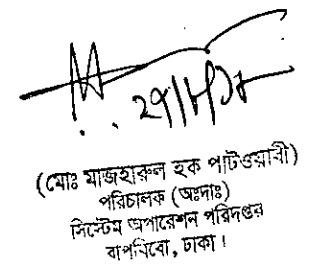 (মোঃ মাজহারুল হক পাটওয়ারী)
পরিচালক (অঃদাঃ)
সিস্টেম অপারেশন পরিদপ্তর
বাপবিবো, ঢাকা।